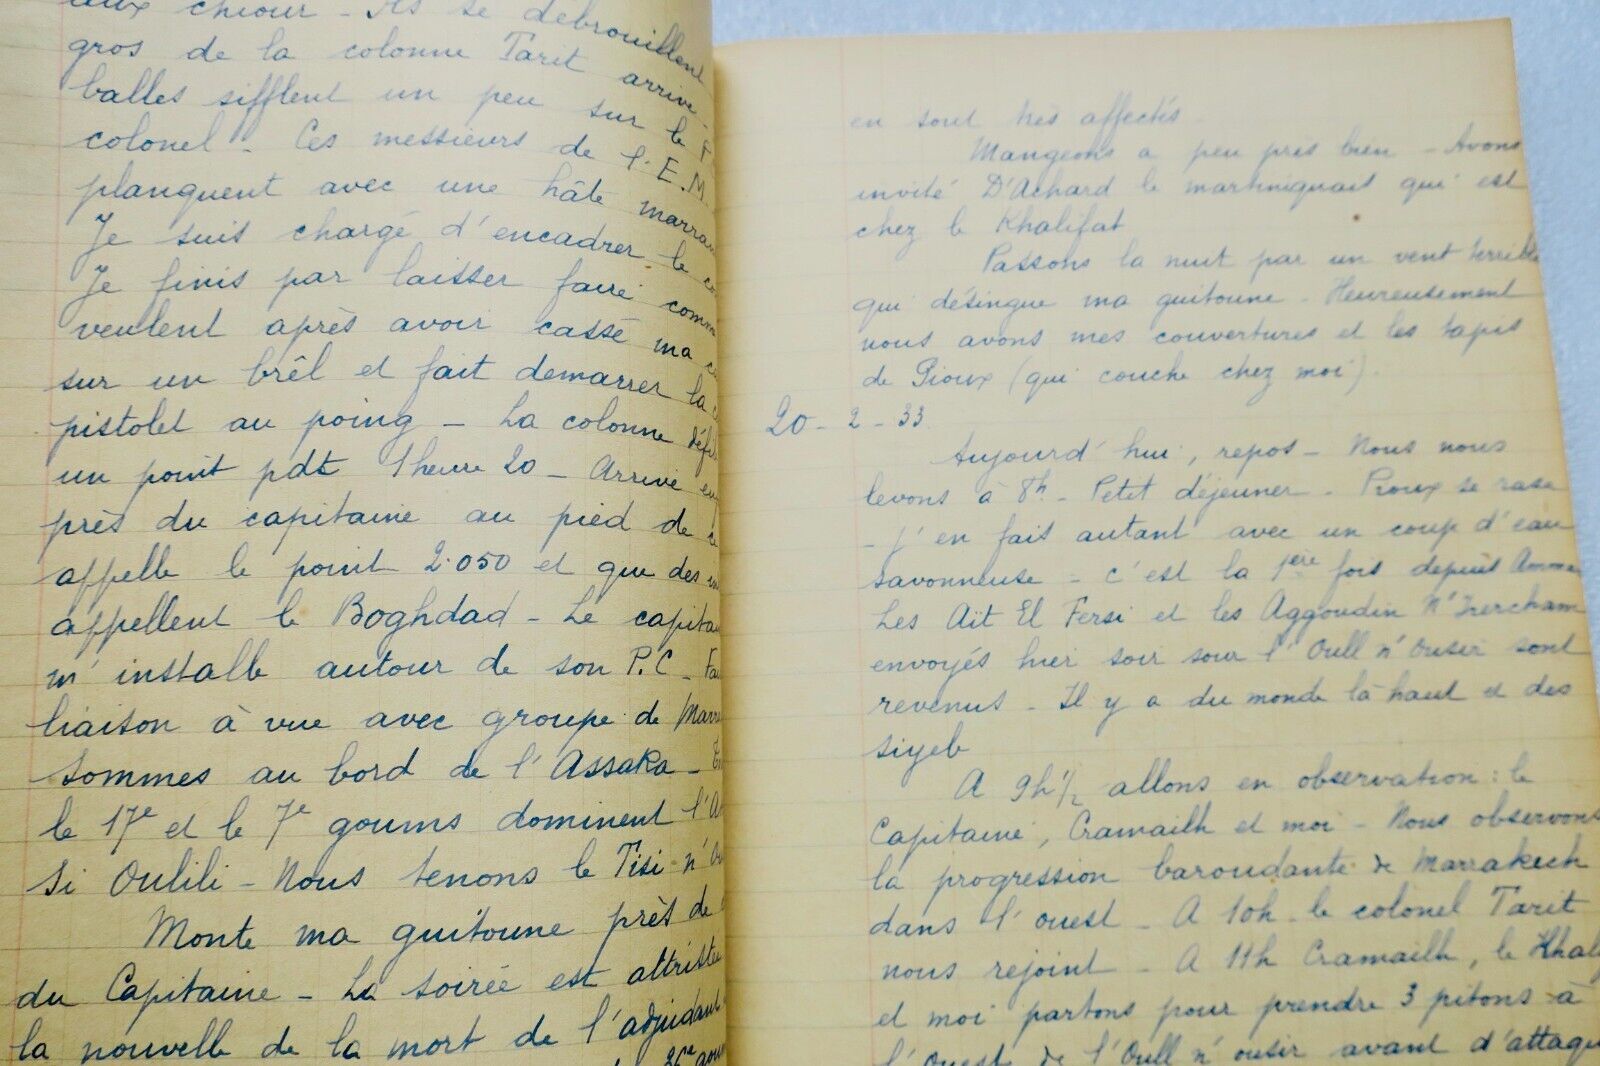 aux chiour - Ils se débrouillent
gros de la colonne Tarit arrive -
balles sifflent un peu sur le
colonel - Ces messieurs de l'E.M.
planquent avec une hâte
Je suis chargé d'encadrer le
Je finis par laisser faire
veulent après avoir cassé ma
sur un brêl et fait demarrer la
pistolet au poing - La colonne
un point pdt 1 heure 20 - Arrive
près du capitaine au pied de
appelle le point 2.050 et que des
appellent le Boghdad - Le
m'installe autour de son P.C -
liaison à vue avec groupe de
sommes au bord de l'Assaka -
le 17e et le 7e goums dominent
Si Oulili - Nous tenons le Tisi n'
Monte ma guitoune près de
du Capitaine - La soirée est
la nouvelle de la mort de l'adjudant
26e
en sont très affectés -
Mangeons a peu près bien - Avons
invité D'Achard le martiniquais qui est
chez le Khalifat
Passons la nuit par un vent terrible
qui désingue ma guitoune - Heureusement
nous avons mes couvertures et les tapis
de Pioux (qui couche chez moi).
20 - 2 - 33
Aujourd'hui, repos - Nous nous
levons à 8h - Petit déjeuner - Pioux se rase
- j'en fait autant avec un coup d'eau
savonneuse - c'est la 1ère fois depuis
Les Aït El Fersi et les Aggoudin N'
envoyés hier soir sour l'Oull n'Ousir sont
revenus - Il y a du monde là haut et des
siyeb
A 9h1/2 allons en observation : le
Capitaine, Cramailh et moi - Nous observons
la progression baroudante de Marrakech
dans l'ouest - A 10h le colonel Tarit
nous rejoint - A 11h Cramailh, le
et moi partons pour prendre 3 pitons à
l'Ouest de l'Oull n'ousir avant